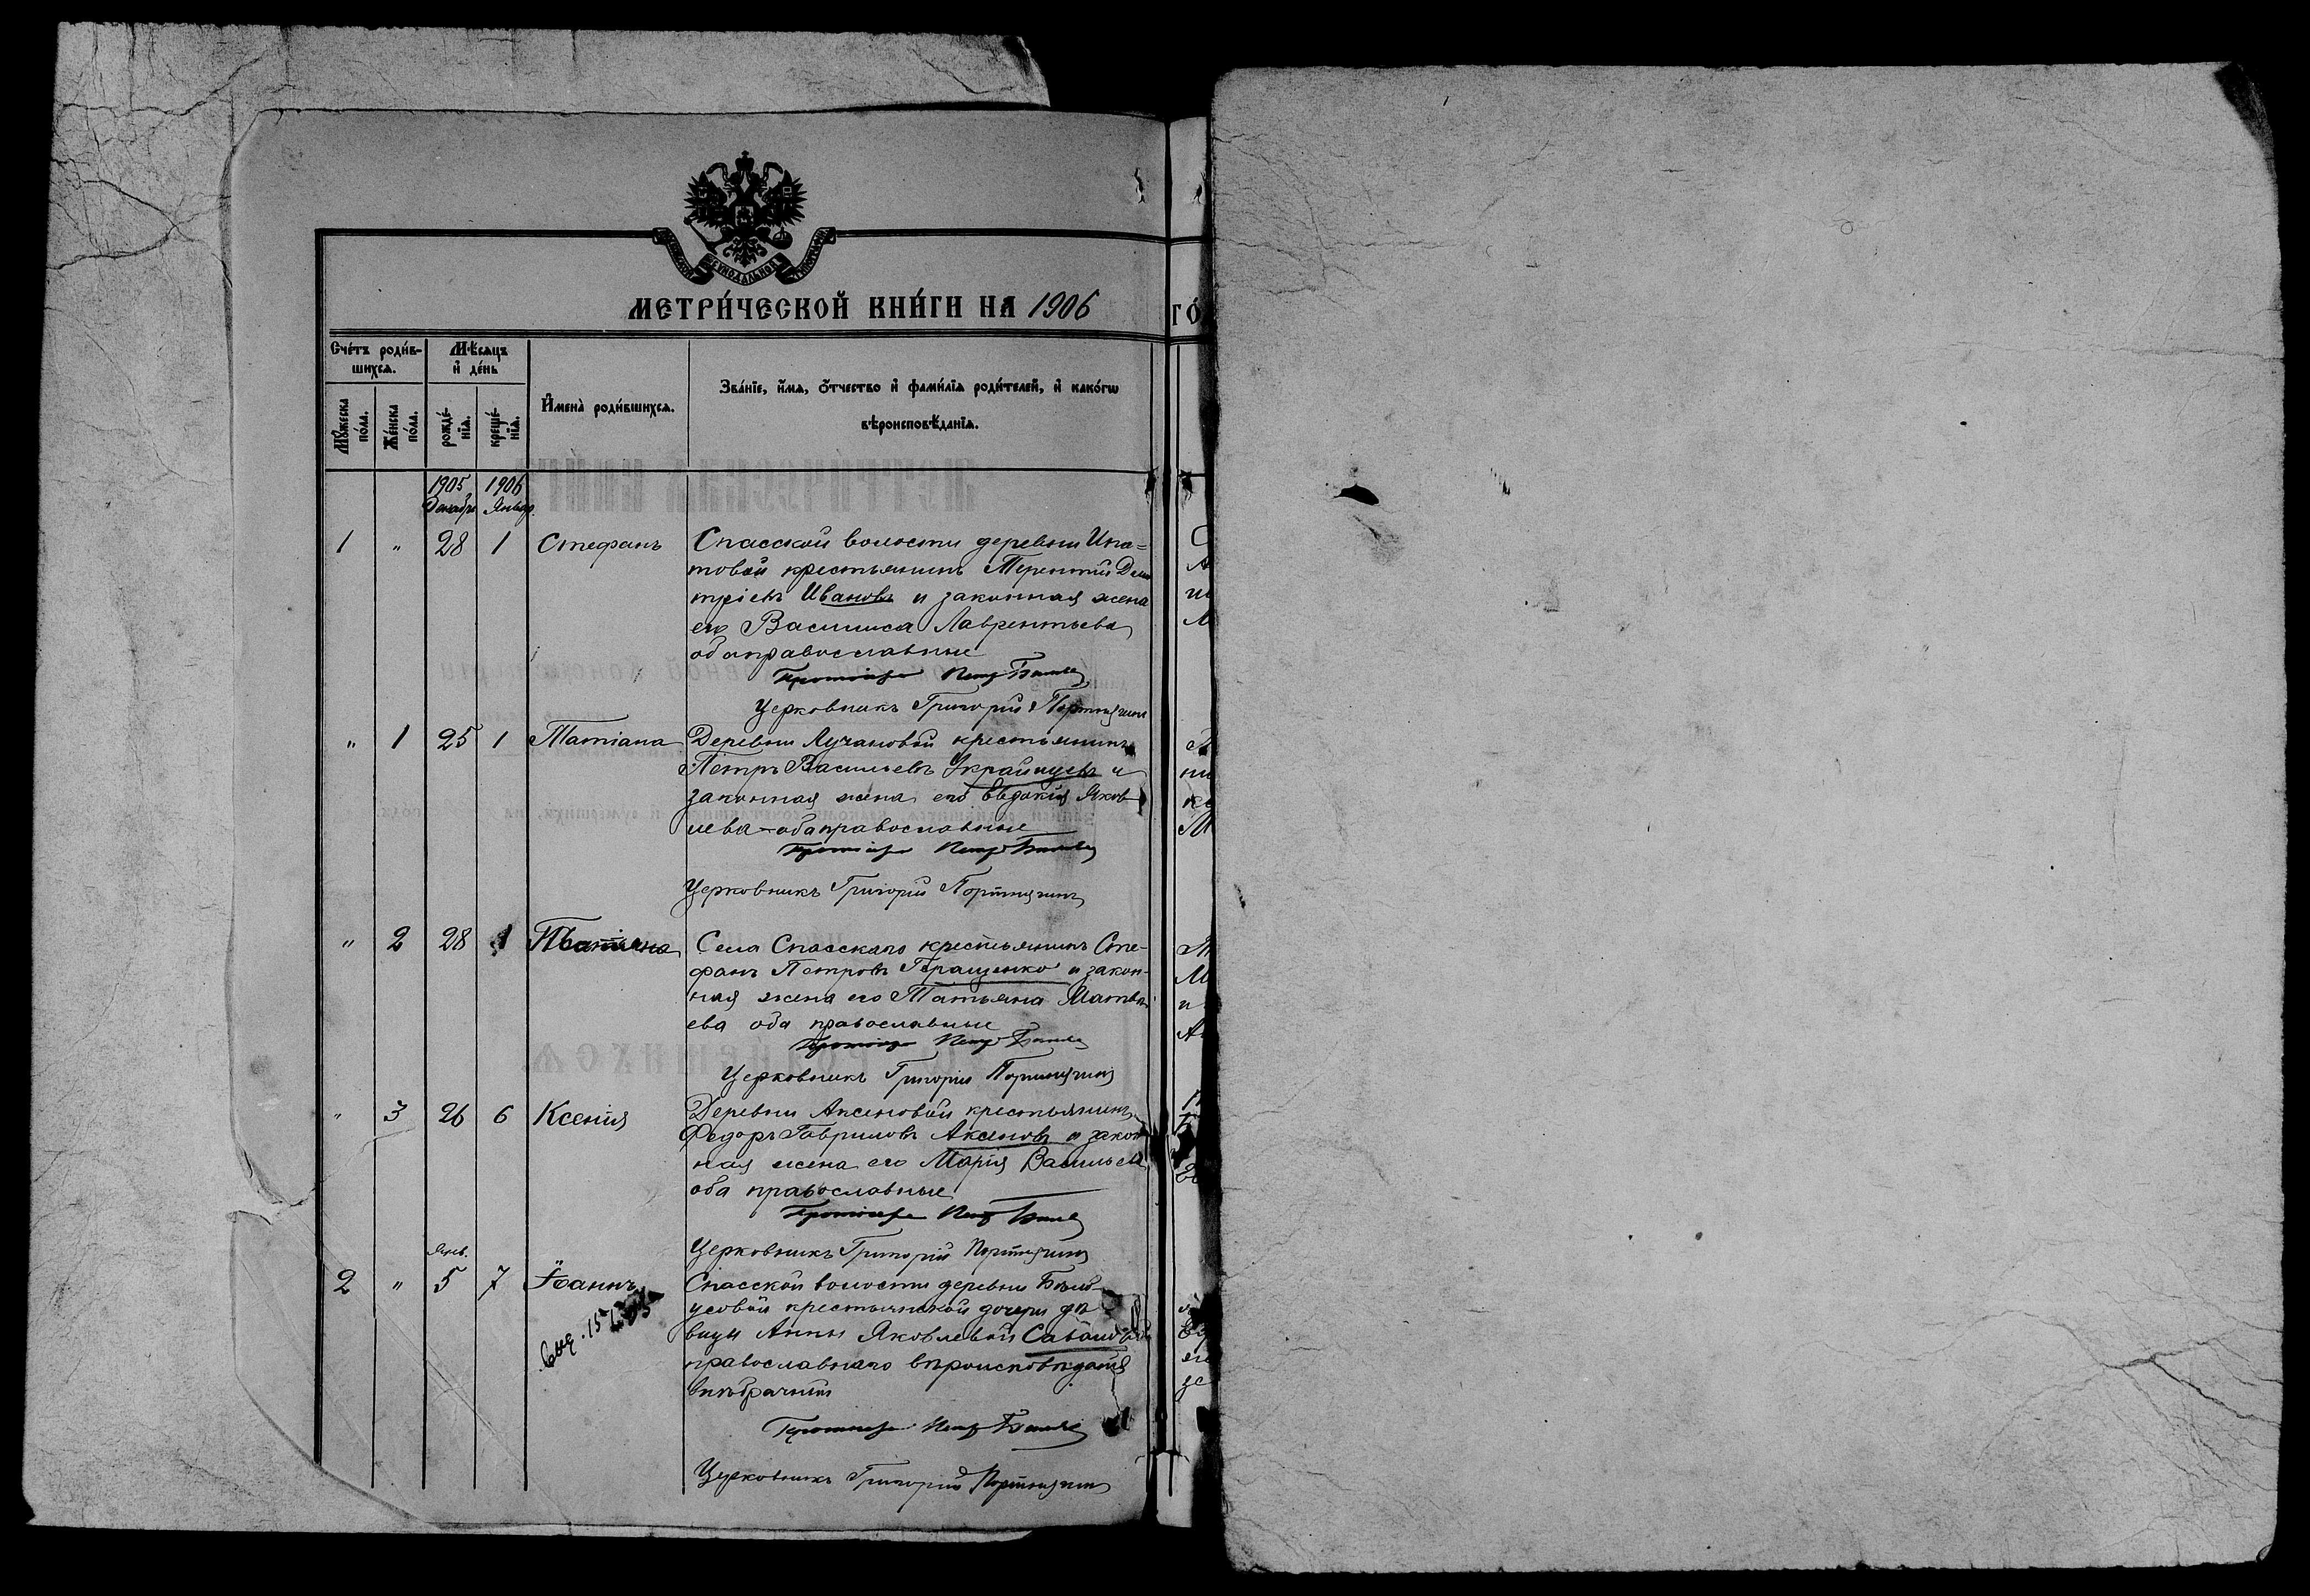 МЕТРИ́ЧЕСКОЙ КНИ́ГИ НА 1906
ГО́
Сче́тъ роди́в-
шихся.
Мѣ́сяцъ
и҆ де́нь
И҆мена̀ роди́вшихся.
Зва́нїе, и҆́мя, ѻ҆́тчество и҆ фами́лїя роди́телей, и҆ како́гѡ
вѣроисповѣ́данїя.
Мꙋ́жеска
по́ла.
Же́нска
по́ла.
рожде́-
нїя.
креще́-
нїя.
1905 1906
Декабр Январ.
1 " 28 1 Стефанъ Спасской волости деревни Ипа=
товой крестьянинъ Терентій Дим
тріевъ Ивановъ и законная жена
его Васлиса Лаврентьева
оба православные
Протоіерей Петр
Церковникъ Григорій Портнягинъ
" 1 25 1 Татіана Деревни Лучановой крестьянинъ
Петръ Васильевъ Украйнцевъ и
законная жена его Евдокія Яков
лева оба православные
Протоіерей Петр
Церковникъ Григорій Портнягинъ
" 2 28 1 Татіана Села Спасскаго крестьянинъ Сте-
фанъ Петровъ Геращенко и закон-
ная жена его Татьяна Матвѣ
ева оба православные
Протоіерей Петр
Церковникъ Григорій Портнягинъ
" 3 26 6 Ксенія Деревни Аксеновой крестьянинъ
Федоръ Гавриловъ Аксеновъ и закон
ная жена его Марія Васильева
оба православные
Протоіерей Петр
Церковникъ Григорій Портнягинъ
Янв.
2 " 5 7 Іоаннъ Спасской волости деревни
усовой крестьянской дочери дѣ
вицы Анны Яковлевой
православнаго вѣроисповѣданія
внѣбрачный
Протоіерей Петр
Церковникъ Григорій Портнягинъ